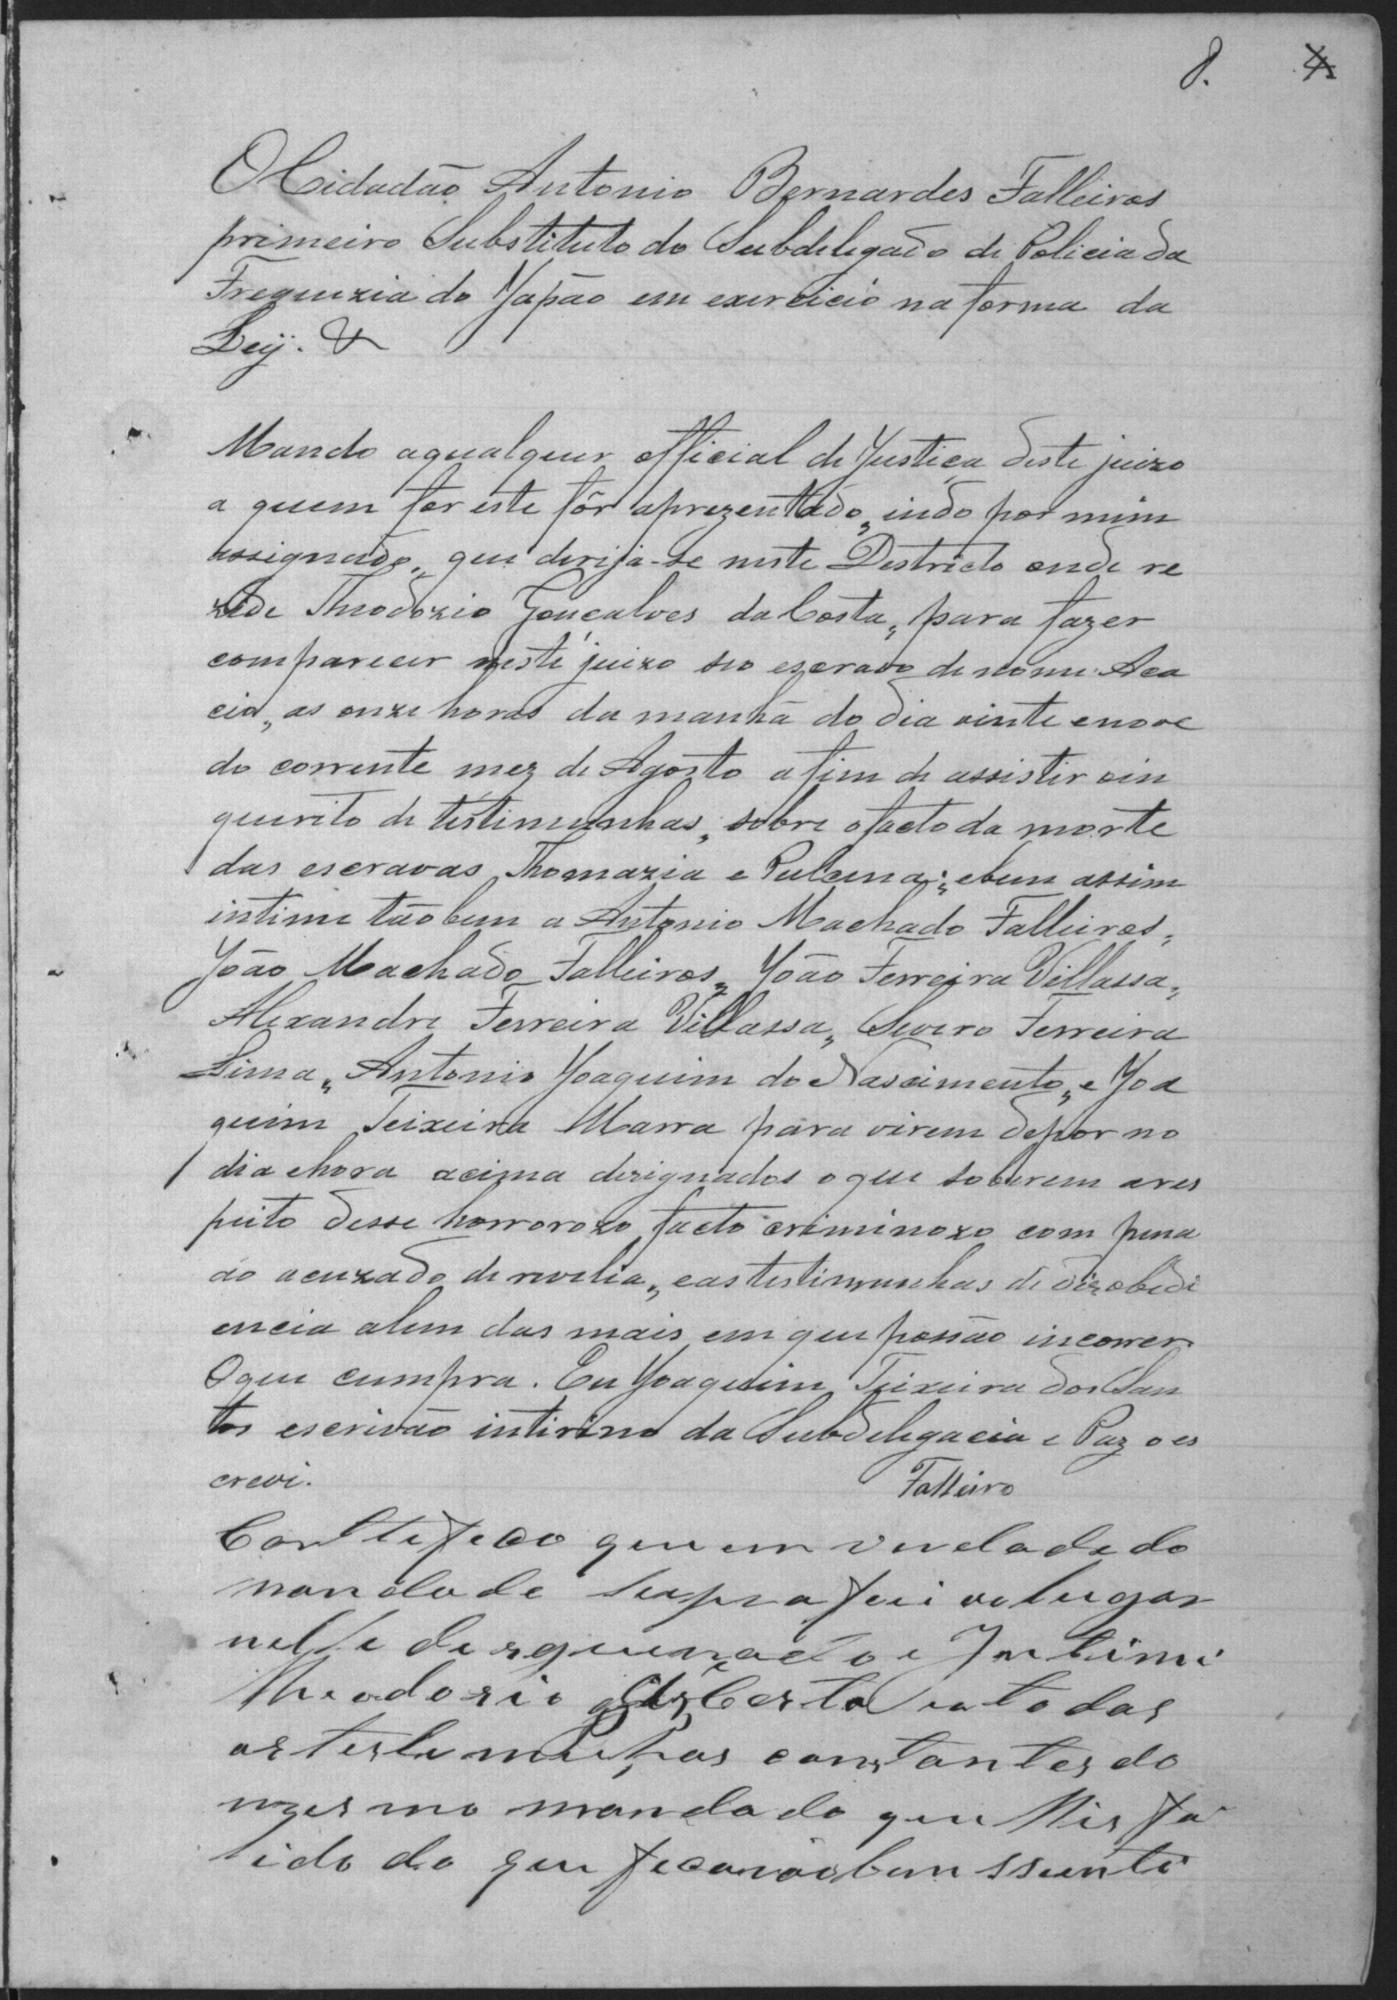 8. 4
O Cidadão Antonio Bernardes Falleiros
primeiro Substituto do Subdelegado de Policia da
Freguezia do Japão em exercicio na forma da
Leij. &
Mando aqualquer official de Justiça deste juizo
a quem for este fôr aprezentado, indo por mim
assignado, que derija-se neste Destricto onde re
zide Theodozio Gonçalves da Costa, para fazer
comparecer neste juizo seo escravo de nome Aca
cio, as onze horas da manhã do dia vinte enove
do corrente mez de Agosto afim de assistir oin
querito de testimunhas, sobre ofacto da morte
das escravas Thomazia e Pulcena; ebem assim
intime tãobem a Antonio Machado Falleiros,
João Machado Falleiros, João Ferreira Villassa,
Alexandre Ferreira Villassa, Severo Ferreira
Lima, Antonio Joaquim do Nascimento, e Joa
quim Teixeira Marra para virem depor no
dia ehora acima dezignados oque soberem ares
peito desse horrorozo facto criminozo com pena
ao acuzado de revelia, eas testimunhas de dizobedi
encia alem das mais em que possão incorrer
Oque cumpra. Eu Joaquim Teixeira dos San
tos escrivão intirino da Subdelegacia e Paz o es
crevi.
Falleiro
Certefeco que em virtude do
mandado supra fui ao lugar
nelle dezguinado e Intimei
Theodozio da Costa e a todas
as testemunhas constantes do
mesmo mandado que lhes fa
lido do que fecarão bem ssiente